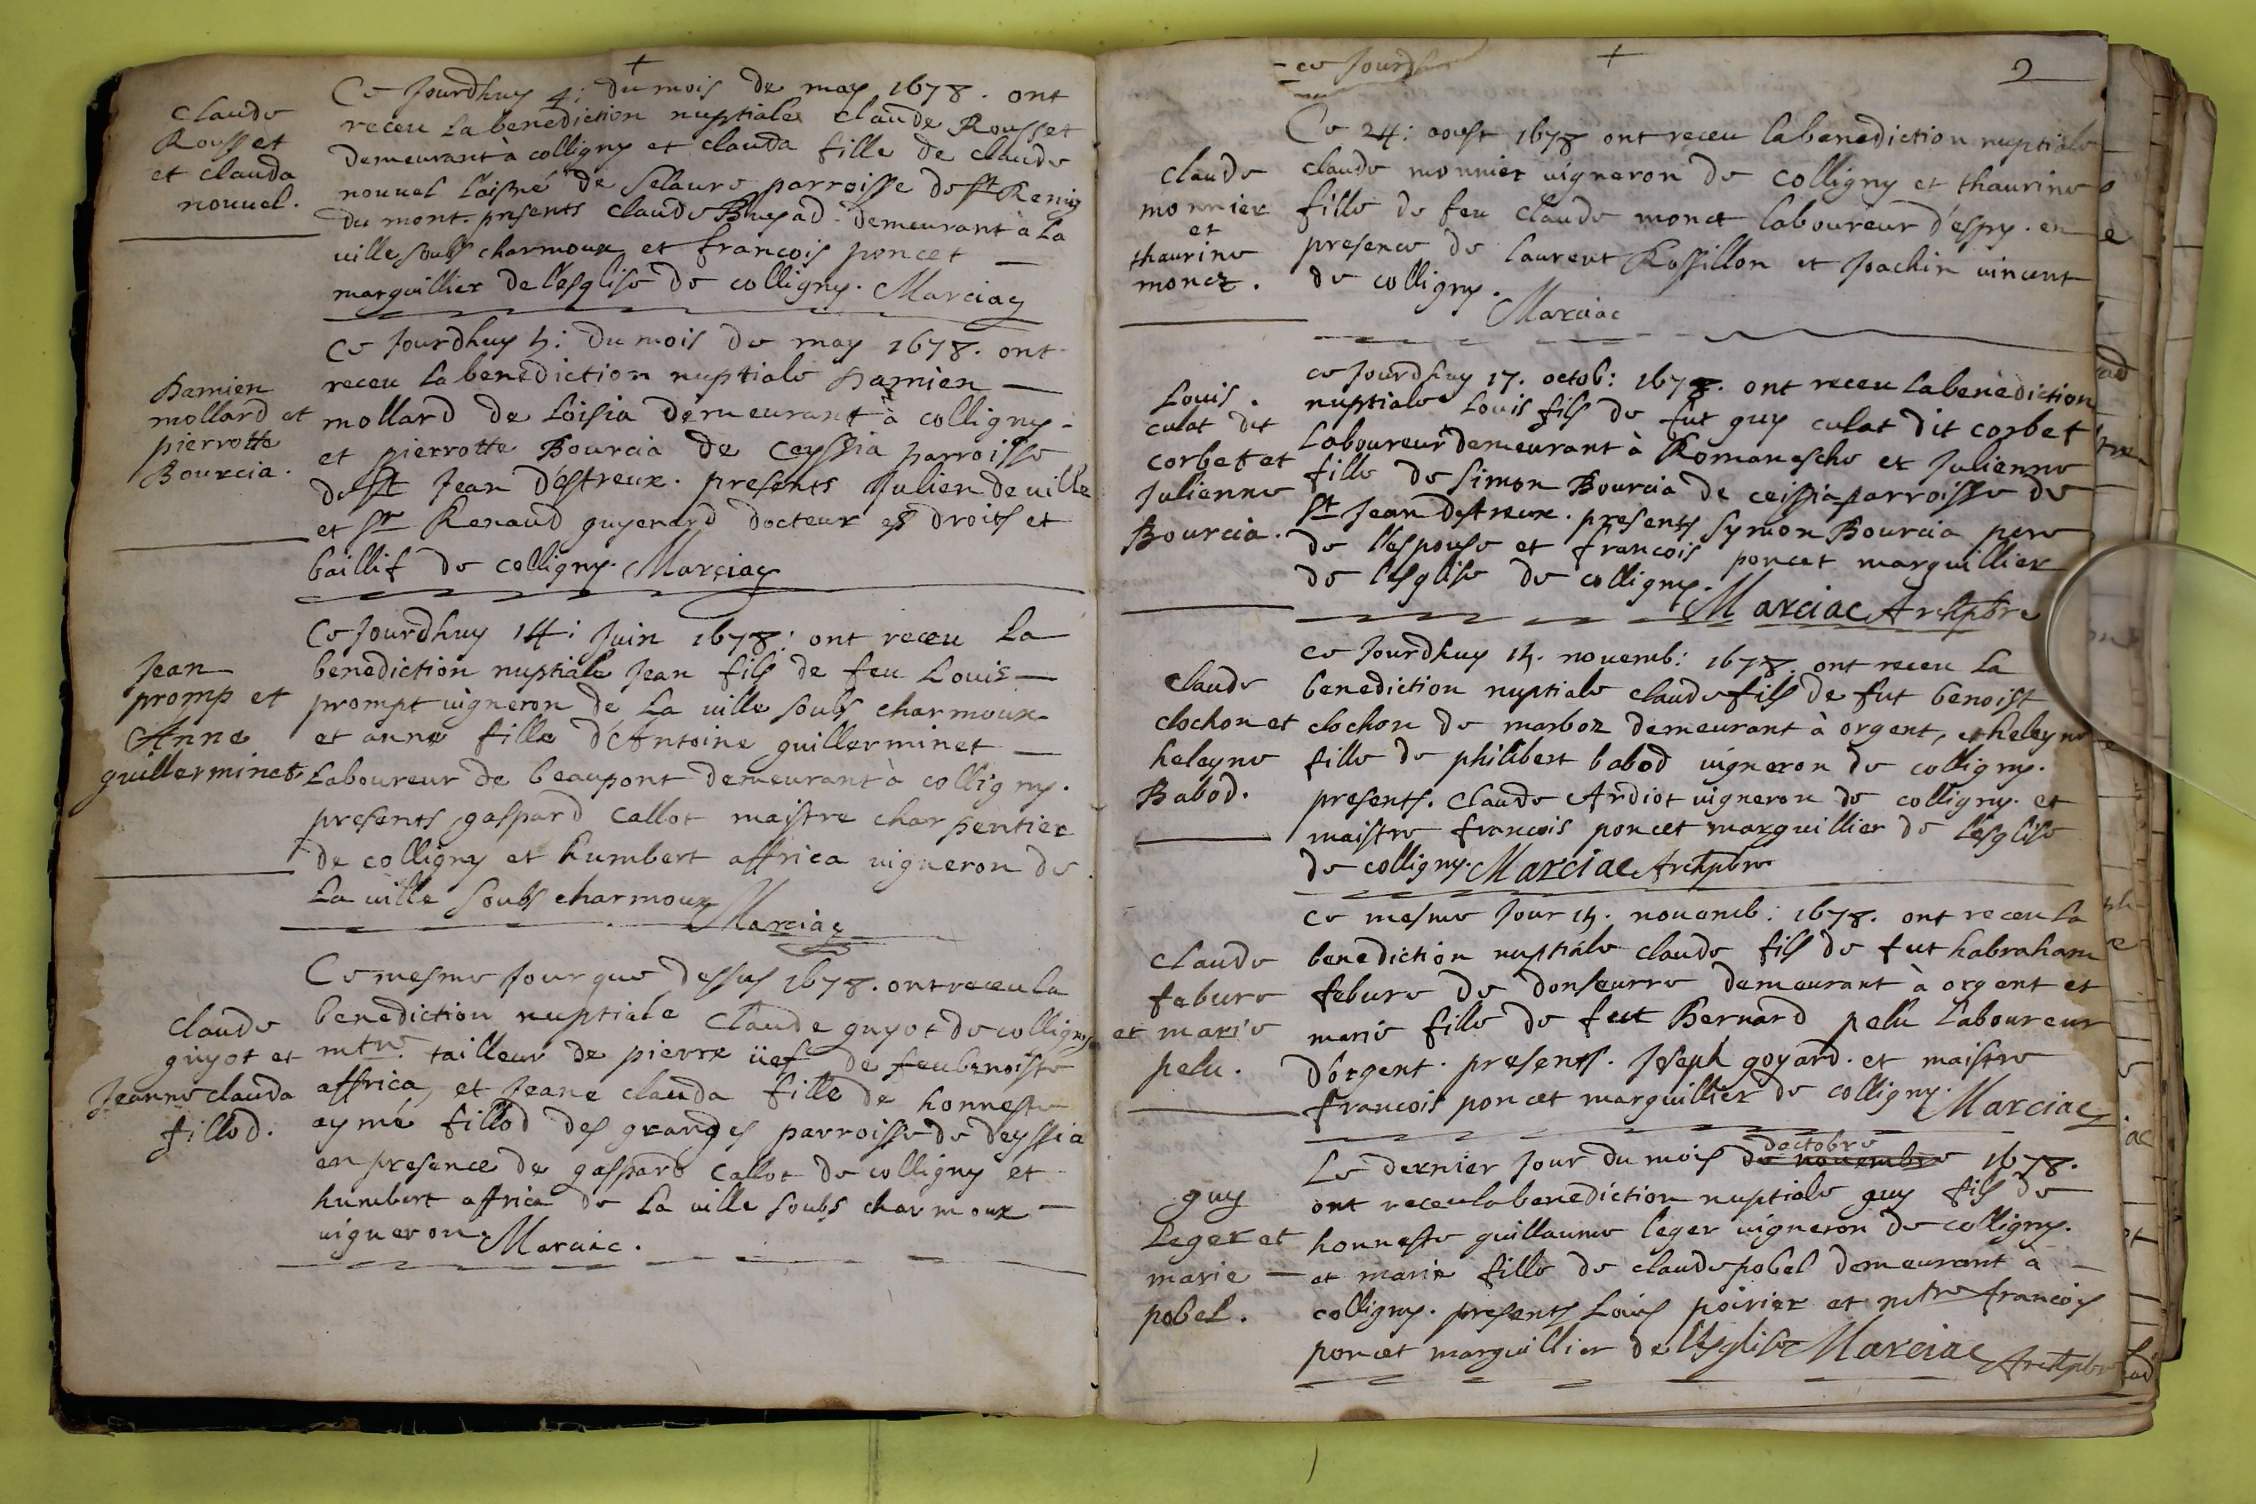 +
Claude
Rousset
et clauda
nouuel.
Ce Jourdhuy 4: du mois de may 1678. ont
receu La benediction nuptiale Claude Rousset
demeurant à colligny et clauda fille de claude
nouuel l'aisné de Selaure parroisse de st Remig
du mont. presents claude demeurant à La
uille soubs charmoux et francois poncet
marguillier de l'esglise de colligny. Marciac
Damien
mollard et
pierrotte
Bourcia.
Ce Jourdhuy 5: du mois de may 1678. ont
receu La benediction nuptiale Damien
mollard de Loisia demeurant à colligny
et pierrotte Bourcia de Ceyssia parroisse
de st Jean d'estreux. presents Julien deuille
et sr Renaud guyenard docteur es droits et
baillif de colligny. Marciac
Jean
promp et
Anne
guillerminet
Ce Jourdhuy 14: Juin 1678: ont receu La
benediction nuptiale Jean fils de feu Louis
prompt uigneron de La uille soubs charmoux
et anne fille d'Antoine guillerminet
Laboureur de beaupont demeurant à colligny.
presents gaspard Callot maistre charpentier
de colligny et humbert affrica uigneron de
La uille soubs charmoux Marciac
Claude
guyot et
Jeanne clauda
fillod.
Ce mesme Jour que dessus 1678. ont receu la
benediction nuptiale Claude guyot de colligny
mtre. tailleur de pierre üef de feu benoiste
affrica, et Jeane clauda fille de honneste
aymé fillod des granges parroisse de deyssia
en presence de gaspard Callot de colligny et
humbert affrica de La uille soubs charmoux
uigneron. Marciac.
ce Jourdhuy
+
2
Claude
monnier
et
thaurine
monet.
Ce 24: aoust 1678 ont receu la benediction nuptiale
claude monnier uigneron de colligny et thaurine
fille de feu Claude monet laboureur d'espy. en
presence de Laurent Rossillon et Joachin uincent
de colligny.
Marciac
Louis.
culat dit
corbet et
Julienne
Bourcia.
ce Jourdhuy 17. octob: 1678. ont receu La benediction
nuptiale Louis fils de fut guy culat dit corbet
Laboureur demeurant à Romanesche et Julienne
fille de Simon Bourcia de ceissia parroisse de
st Jean destreux. presents Symon Bourcia pere
de l'espouse et francois poncet marguillier
de l'esglise de colligny.
Marciac Archpbre
Claude
clochon et
heleyne
Babod.
ce Jourdhuy 15. nouemb: 1678. ont receu La
benediction nuptiale claude fils de fut benoist
clochon de marboz demeurant à orgent, et heleyne
fille de philibert babod uigneron de colligny.
presents. Claude Ardiot uigneron de colligny. et
maistre francois poncet marguillier de l'esglise
de colligny. Marciac Archpbre
Claude
febure
et marie
pelu.
ce mesme Jour 15. nouemb: 1678. ont receu La
benediction nuptiale claude fils de fut habraham
febure de donseurre demeurant à orgent et
marie fille de feut Bernard pelu Laboureur
d'orgent. presents. Joseph goyard. et maistre
francois poncet marguillier de colligny. Marciac
guy
Leger et
marie
pobel.
doctobre
Le dernier Jour du mois de nouembre 1678.
ont receu la benediction nuptiale guy fils de
honneste guillaume leger uigneron de colligny.
et marie fille de claude pobel demeurant à
colligny. presents Louis poirier et mtre francois
poncet marguillier de l'esglise Marciac Archpbre